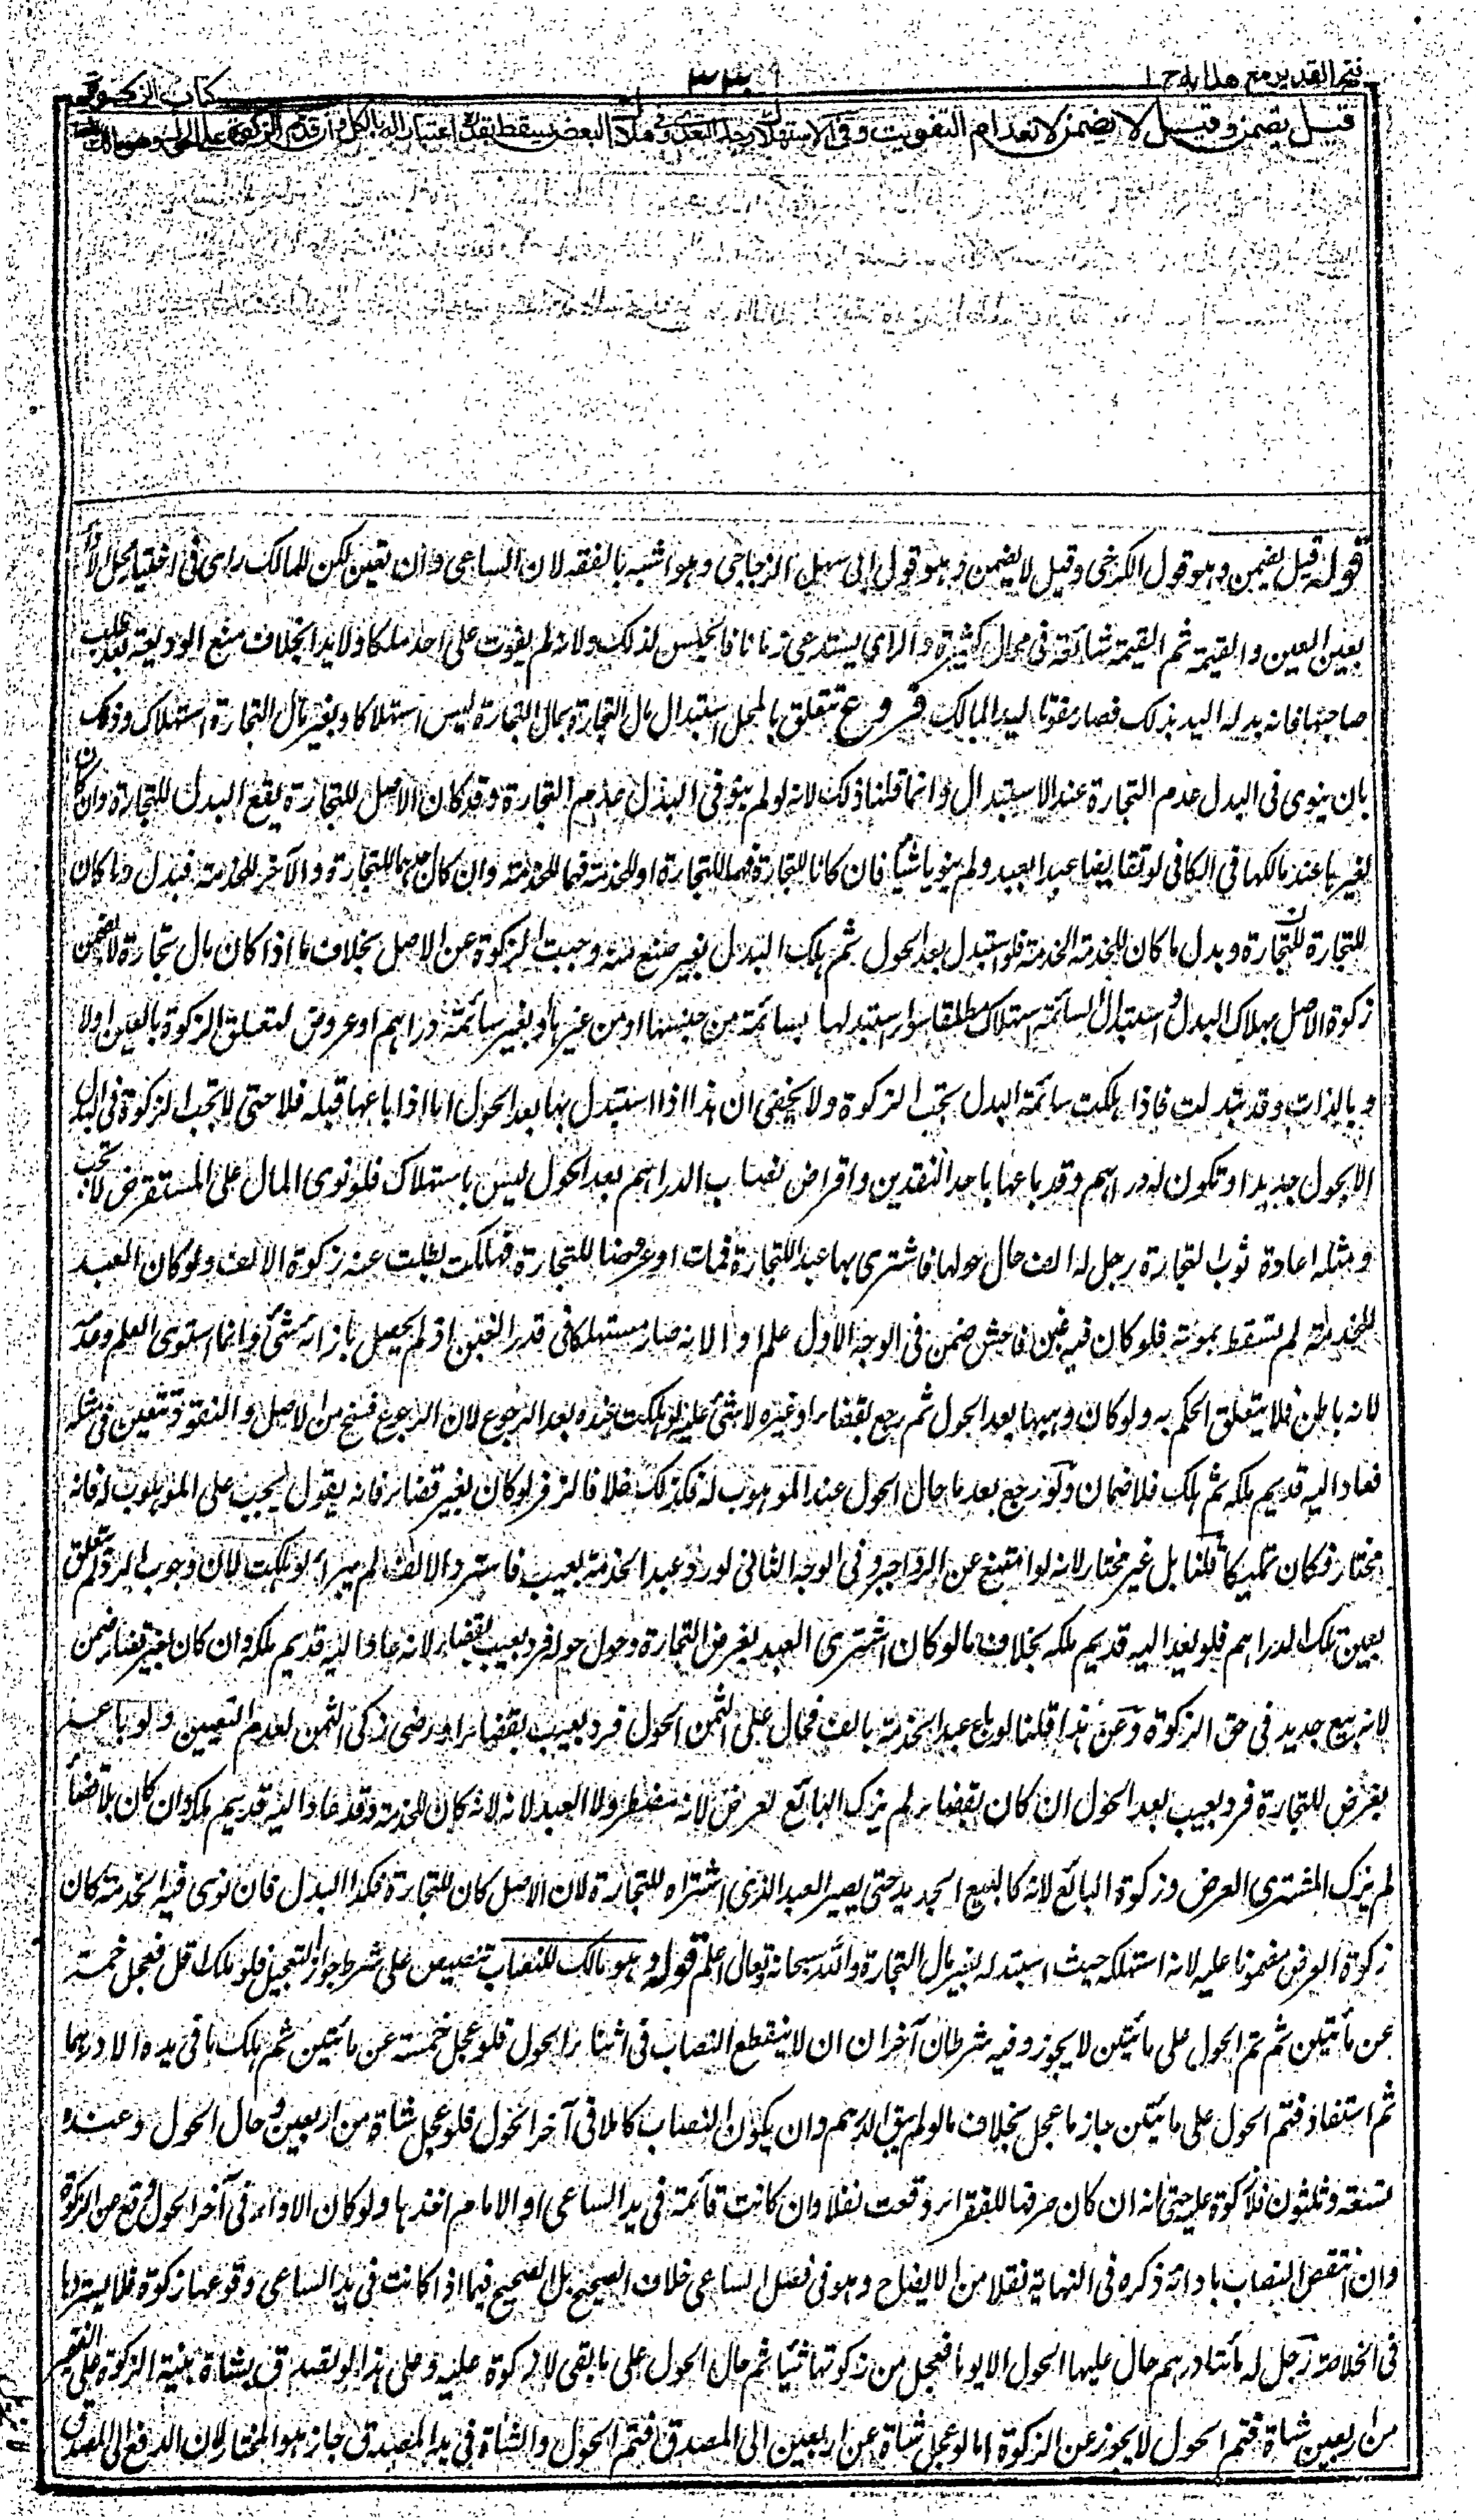 فتح القدير مع هدايه ج ١
٣٣٠
كتاب الزكوة
قيل يضمن وقيل لا يضمن لانعدام التفويت وفى الاستهلاك وجد التعدى وفى هلاك البعض يسقط بقدره اعتبارا له بالكل وان قدم الزكوة على الحول وهو مالك
قوله قيل يضمن وهو قول الكرخى وقيل لا يضمن وهو قول ابى سهل الزجاجى وهو اشبه بالفقه لان الساعى وان تعين لكن للمالك راى فى اختيار محل الاداء
بين العين والقيمة ثم القيمة شائعة فى محال كثيرة والراى يستدعى زمانا فالحبس لذلك ولانه لم يفوت على احد ملكا ولا يدا بخلاف منع الوديعة بعد طلب
صاحبها فانه بدله اليد بذلك فصار مفوتا ليد المالك فروع تتعلق بالمحل استبدال مال التجارة بمال التجارة ليس استهلاكا وبغير مال التجارة استهلاك وذلك
بان ينوى فى البدل عدم التجارة عند الاستبدال وانما قلنا ذلك لانه لو لم ينو فى البدل عدم التجارة وقد كان الاصل للتجارة يقع البدل للتجارة وان كان
لغيرها عند مالكها فى الكافى لو تقايضا عبدا بعبد ولم ينويا شيأ فان كانا للتجارة فهما للتجارة او للخدمة فهما للخدمة وان كان احدهما للتجارة والآخر للخدمة فبدل ما كان
للتجارة للتجارة وبدل ما كان للخدمة للخدمة فلو استبدل بعد الحول ثم هلك البدل بغير صنع منه وجبت الزكوة عن الاصل بخلاف ما اذا كان مال تجارة لا يضمن
زكوة الاصل بهلاك البدل واستبدال السائمة استهلاك مطلقا سواء استبدلها بسائمة من جنسها او من غيرها او بغير سائمة دراهم او عروض لتعلق الزكوة بالعين اولا
وبالذات وقد تبدلت فاذا هلكت سائمة البدل تجب الزكوة ولا يخفى ان هذا اذا استبدل بها بعد الحول اما اذا باعها قبله فلا حتى لا تجب الزكوة فى البدل
الا بحول جديد او تكون له دراهم وقد باعها باحد النقدين واقراض نصاب الدراهم بعد الحول ليس باستهلاك فلو توى المال على المستقرض لا تجب
ومثله اعادة ثوب لتجارة رجل له الف حال حولها فاشترى بها عبدا للتجارة فمات او عروضا للتجارة فهلكت بطلت عنه زكوة الالف ولو كان العبد
للخدمة لم تسقط بموته فلو كان فيه غبن فاحش ضمن فى الوجه الاول علم او لا لانه صار مستهلكا فى قدر الغبن اذ لم يحصل بازائه شئ وانما استوى العلم وعدمه
لانه باطن فلا يتعلق الحكم به ولو كان وهبها بعد الحول ثم رجع بقضاء او غيره لا شئ عليه لو هلكت عنده بعد الرجوع لان الرجوع فسخ من الاصل والنقود تتعين فى مثله
فعاد اليه قديم ملكه ثم هلك فلا ضمان ولو رجع بعد ما حال الحول عند الموهوب له فكذلك خلافا لزفر لو كان بغير قضاء فانه يقول يجب على الموهوب له فانه
مختار فكان تمليكا قلنا بل غير مختار لانه لو امتنع عن الرد اجبر وفى الوجه الثانى لو رد عبد الخدمة بعيب فاسترد الالف لم يبرأ لو هلكت لان وجوب الرد لم يتعلق
بعين تلك الدراهم فلم يعد اليه قديم ملكه بخلاف ما لو كان اشترى العبد بعرض التجارة وحال حوله فرد بعيب بقضاء لانه عاد اليه قديم ملكه وان كان بغير قضاء ضمن
لانه بيع جديد فى حق الزكوة وعن هذا قلنا لو باع عبد الخدمة بالف فحال على الثمن الحول فرد بعيب بقضاء او رضى زكى الثمن لعدم التعيين ولو باعه
بعرض للتجارة فرد بعيب بعد الحول ان كان بقضاء لم يزك البائع العرض لانه مضطر ولا العبد لانه لانه كان للخدمة وقد عاد اليه قديم ملكه وان كان بلا قضاء
لم يزك المشترى العرض وزكوة البائع لانه كالبيع الجديد حتى يصير العبد الذى اشتراه للتجارة لان الاصل كان للتجارة فكذا البدل فان نوى فيه الخدمة كان
زكوة العرض مضمونا عليه لانه استهلكه حيث استبدله بغير مال التجارة والله سبحانه وتعالى اعلم قوله وهو مالك للنصاب تنصيص على شرط جواز التعجيل فلو ملك اقل فعجل خمسة
عن مأتين ثم تم الحول على مأتين لا يجوز وفيه شرطان آخران ان لا ينقطع النصاب فى اثناء الحول فلو عجل خمسة عن مأتين ثم هلك ما فى يده الا درهما
ثم استفاد فتم الحول على مأتين جاز ما عجل بخلاف ما لو لم يبق الدرهم وان يكون النصاب كاملا فى آخر الحول فلو عجل شاة من اربعين وحال الحول وعنده
تسعة وثلثون فلا زكوة عليه حتى انه ان كان صرفها للفقراء وقعت نفلا وان كانت قائمة فى يد الساعى او الامام اخذها ولو كان الاداء فى آخر الحول وقع عن الزكوة
وان انتقص النصاب بادائه ذكره فى النهاية نقلا من الايضاح وهو فى فصل الساعى خلاف الصحيح بل الصحيح فيما اذا كانت فى يد الساعى وقوعها زكوة فلا يستردها
فى الخلاصة رجل له مأتا درهم حال عليها الحول الا يوما فعجل من زكوتها شيأ ثم حال الحول على ما بقى لا زكوة عليه وعلى هذا لو تصدق بشاة بنية الزكوة على الفقير
من اربعين شاة فتم الحول لا يجوز عن الزكوة اما لو عجل شاة عن اربعين الى المصدق فتم الحول والشاة فى يد المصدق جاز هو المختار لان الدفع الى المصدق